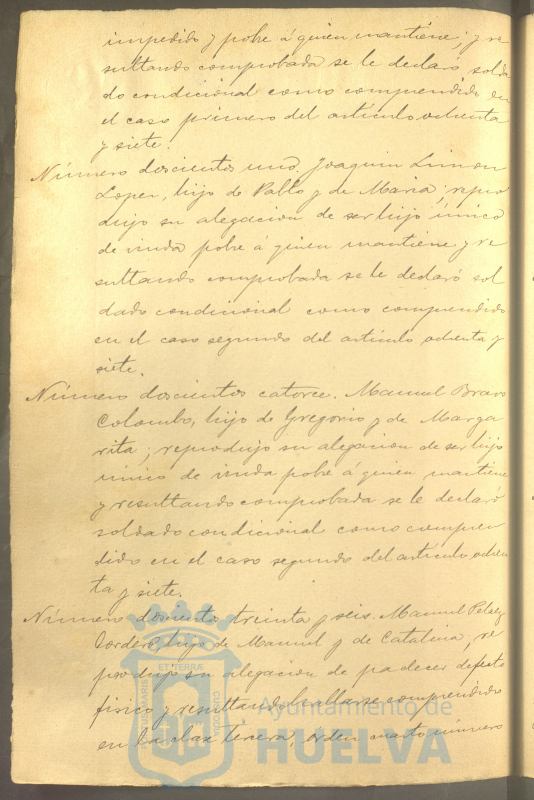 impedido y pobre á quien mantiene; y re
sultando comprobada se le declaró solda
do condicional como comprendido en
el caso primero del artículo ochenta
y siete.
Número doscientos uno. Joaquin Limon
Lopez, hijo de Pablo y de Maria; repro
dujo su alegacion de ser hijo único
de viuda pobre á quien mantiene y re
sultando comprobada se le declaró sol
dado condicional como comprendido
en el caso segundo del artículo ochenta y
siete.
Número doscientos catorce. Manuel Bravo
Colombo, hijo de Gregorio y de Marga
rita; reprodujo su alegacion de ser hijo
único de viuda pobre á quien mantiene
y resultando comprobada se le declaró
soldado condicional como compren
dido en el caso segundo del artículo ochen
ta y siete.
Número doscientos treinta y seis. Manuel Pelaez
Cordero, hijo de Manuel y de Catalina, re
produjo su alegacion de padecer defecto
físico y resultando hallarse comprendido
en la clase tercera, orden cuarto número
Ayuntamiento de
HUELVA
ET TERRÆ
PORTUS MARIS
CUSTODIA